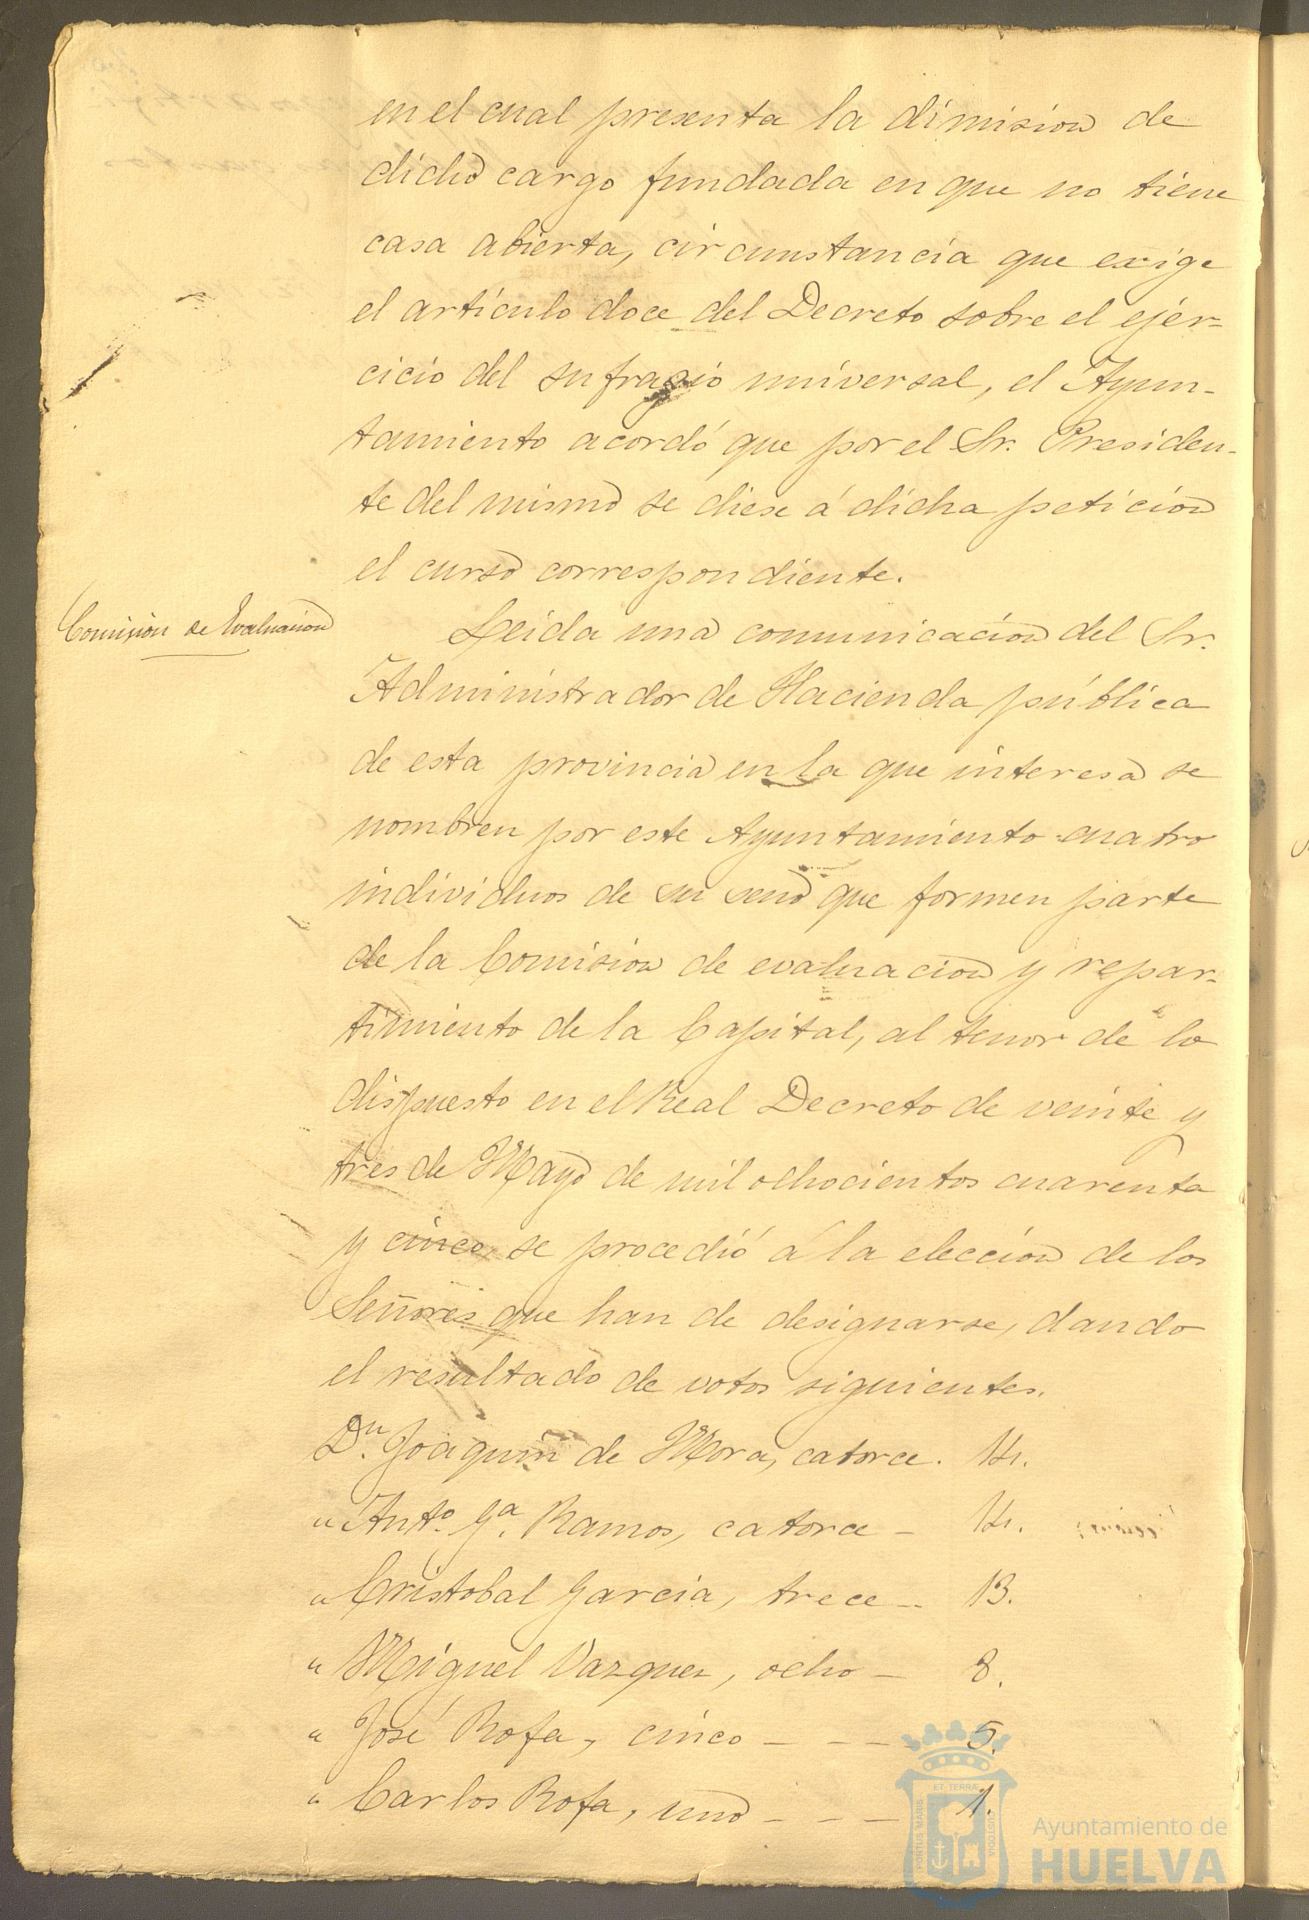 en el cual presenta la dimision de
dicho cargo fundada en que no tiene
casa abierta, circunstancia que exige
el artículo doce del Decreto sobre el ejér-
cicio del sufragio universal, el Ayun-
tamiento acordó que por el Sr. Presiden-
te del mismo se diese á dicha peticion
el curso correspondiente.
Comision de Evaluacion
Leida una comunicacion del Sr.
Administrador de Hacienda pública
de esta provincia en la que interesa se
nombren por este Ayuntamiento cuatro
individuos de su seno que formen parte
de la Comision de evaluacion y repar-
timiento de la Capital, al tenor de lo
dispuesto en el Real Decreto de veinte y
tres de Mayo de mil ochocientos cuarenta
y cinco se procedió á la eleccion de los
Señores que han de designarse, dando
el resultado de votos siguientes.
Dn. Joaquin de Mora, catorce. 14.
" Anto. Ga. Ramos, catorce - 14.
" Cristobal Garcia, trece -- 13.
" Miguel Vazquez, ocho - 8.
" José Rofa, cinco - - - - 5.
" Carlos Rofa, uno - - - 1.
ET TERRÆ
PORTUS MARIS
CUSTODIA
Ayuntamiento de
HUELVA